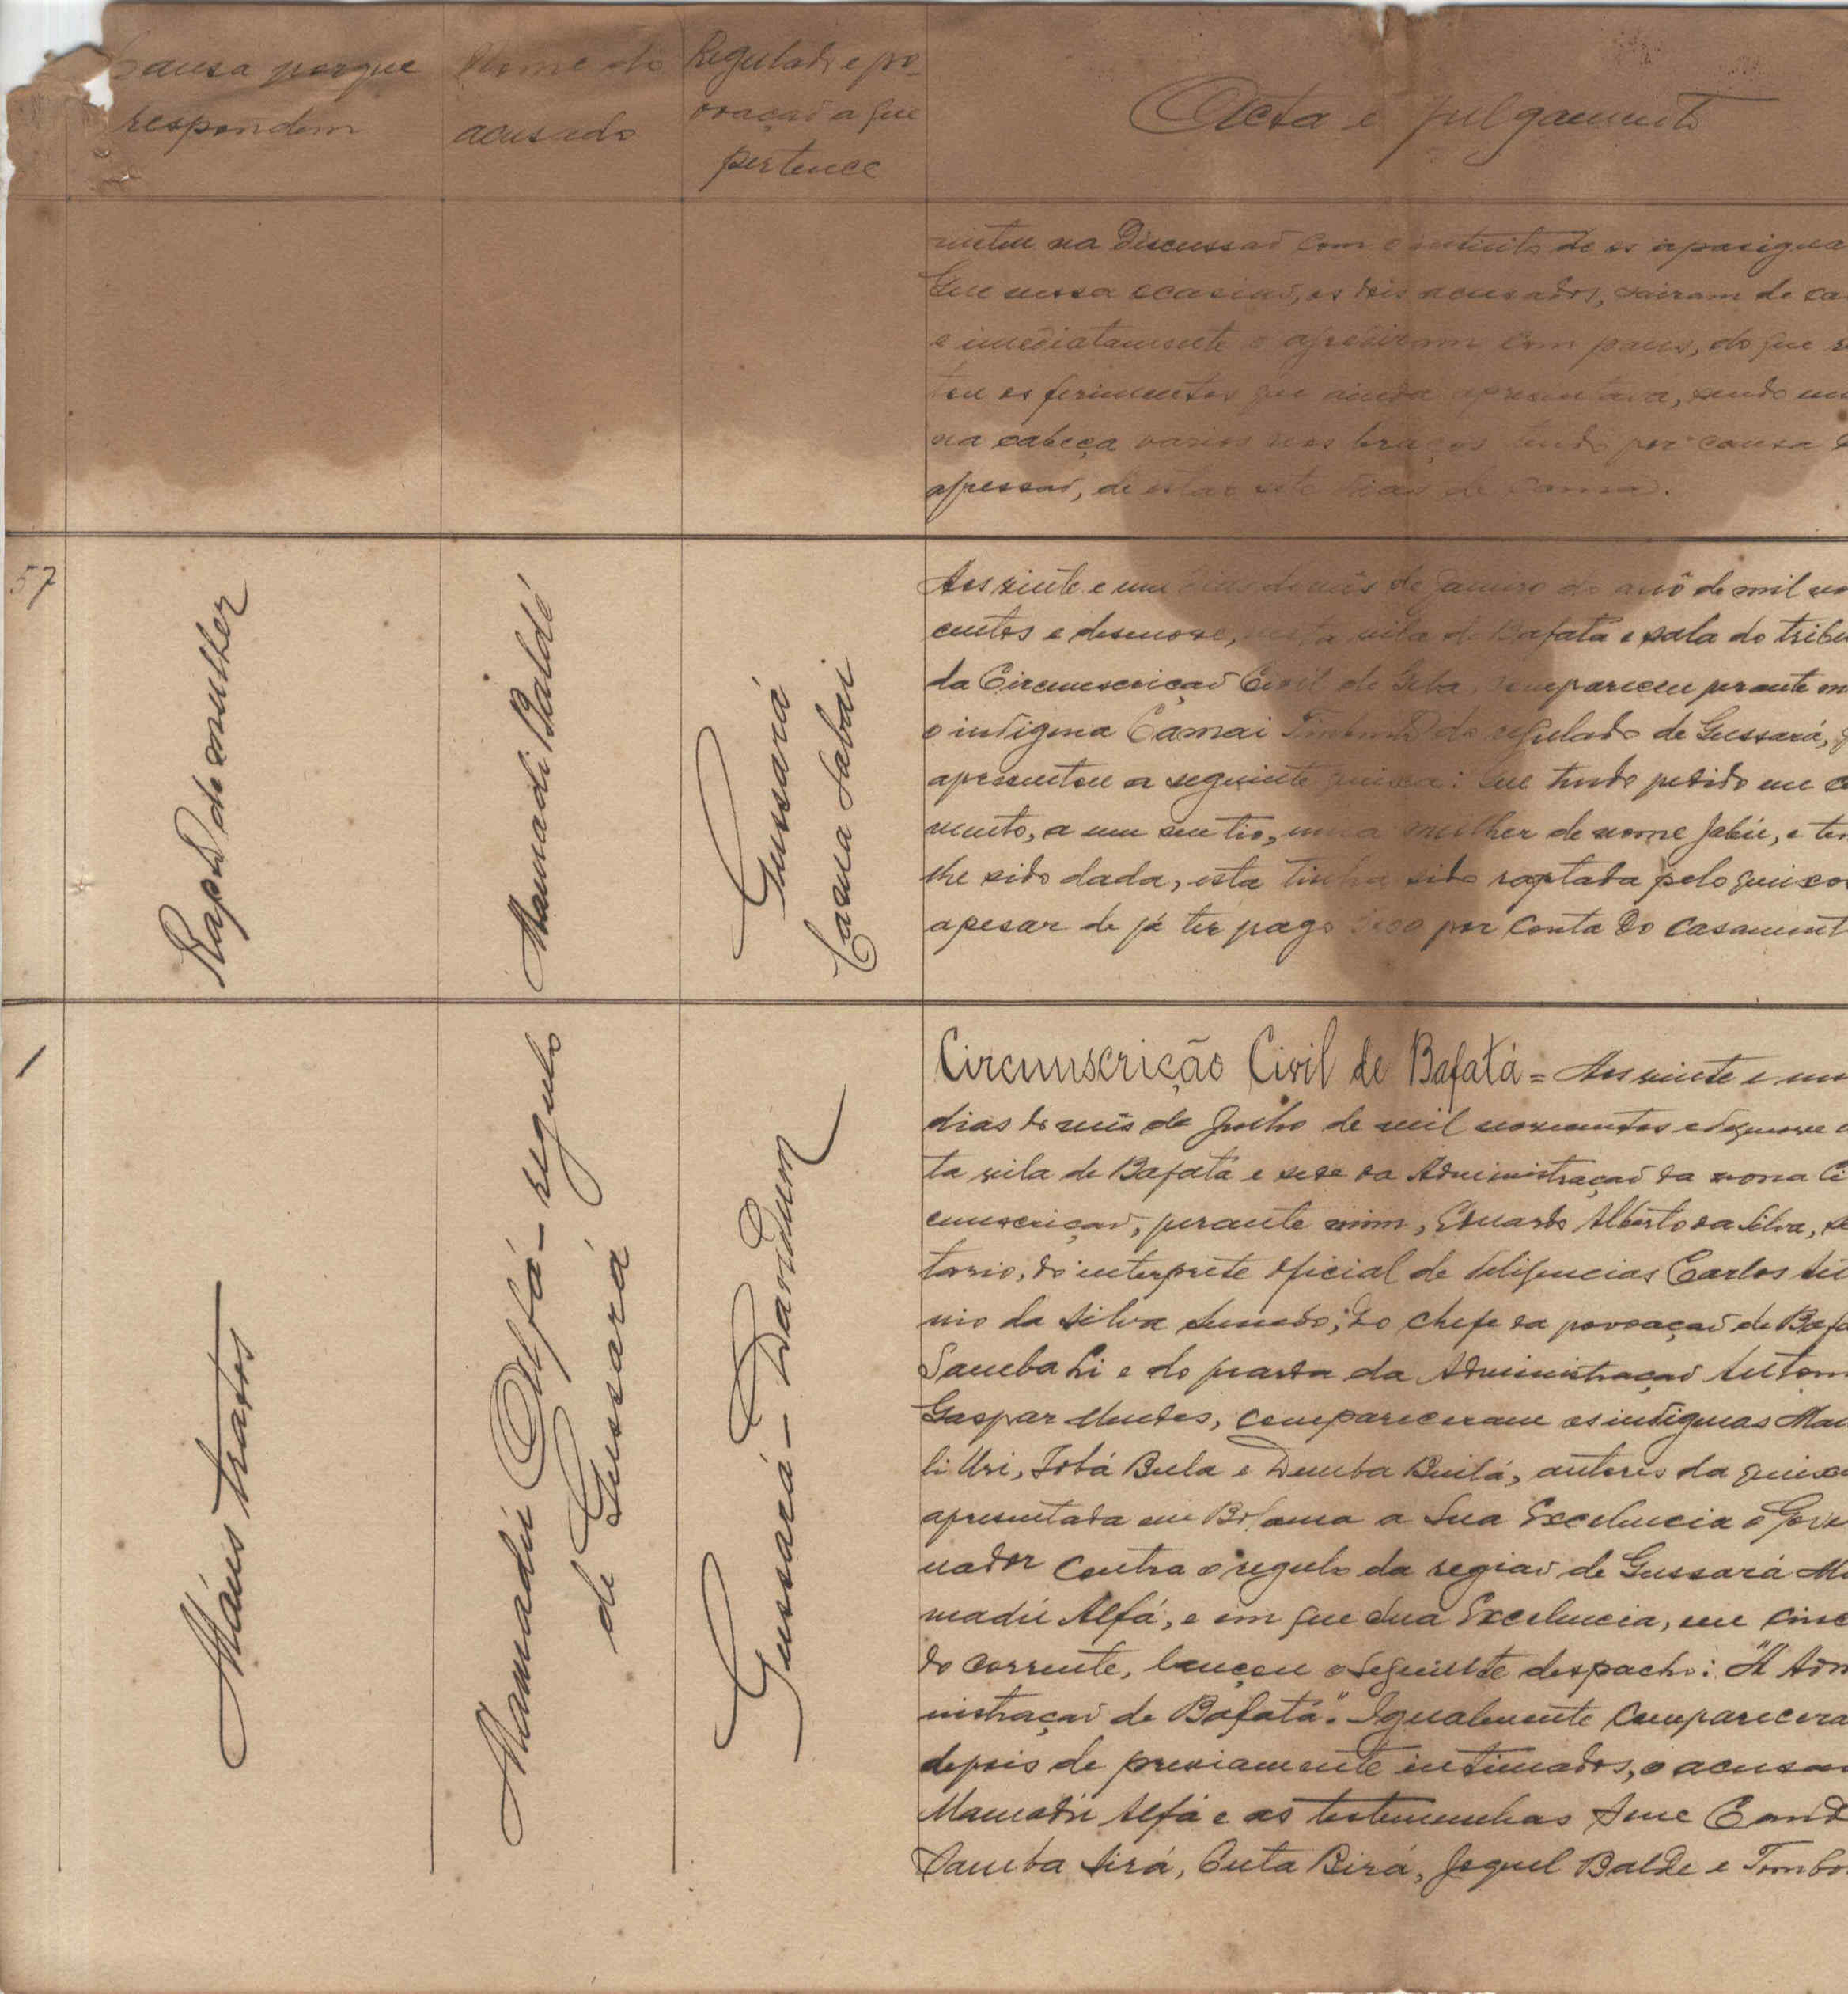 Causa porque
respondem
Nome do
acusado
Regulado e po-
voação a que
pertence
Acta e julgamento
meteu na discussão com o intuito de os apasigua
Que nessa ocasião, os dois acusados, sairam de ca
e imediatamente o agrediram com paus, do que
tou os ferimentos que ainda apresentava, sendo um
na cabeça varios nos braços tendo por causa
agressão, de estar sete dias de cama.
57
Rapto de mulher
Mamadi Baldé
Gussará
Cama Jabai
Aos vinte e um dias do mês de Janeiro do anô de mil no
centos e desenove, nesta vila de Bafatá e sala do tribu
da Circunscrição Civil de Geba, compareceu perante m
o indigena Camai do regulado de Gussará, q
apresentou a seguinte queixa: Que tendo pedido em ca
mento, a um seu tio, uma mulher de nome Jabú, e ten
lhe sido dada, esta tinha sido raptada pelo queixo
apesar de já ter pago por conta do casament
1
Máus tratos
Mamadú Alfá - regulo
de Gussará
Gussará - Dandum
Circunscrição Civil de Bafatá = Aos vinte e um
dias do mês de Julho de mil novecentos e dezenove n
ta vila de Bafatá e sede da Administração da mesma Ci
cunscrição, perante mim, Eduardo Alberto da Silva, se
tario, do interprete oficial de deligencias Carlos
nio da Silva ; do chefe da povoação de Bafa
Samba Li e do guarda da Administração Anton
Gaspar Mendes, compareceram os indigenas Ma
li Uri, Jobá Bula e Demba Builá, autores da queixa
apresentada em Bolama a Sua Excelencia o Gove
nador contra o regulo da região de Gussará Ma
madú Alfá, e em que Sua Excelencia, em cinc
do corrente, lançou o seguinte despacho: "Á Adm
nistração de Bafatá". Igualmente comparecera
depois de previamente intimados, o acusa
Mamadú Alfá e as testemunhas Cand
Samba Sirá, Cuta Birá, Joguel Balde e Tombo